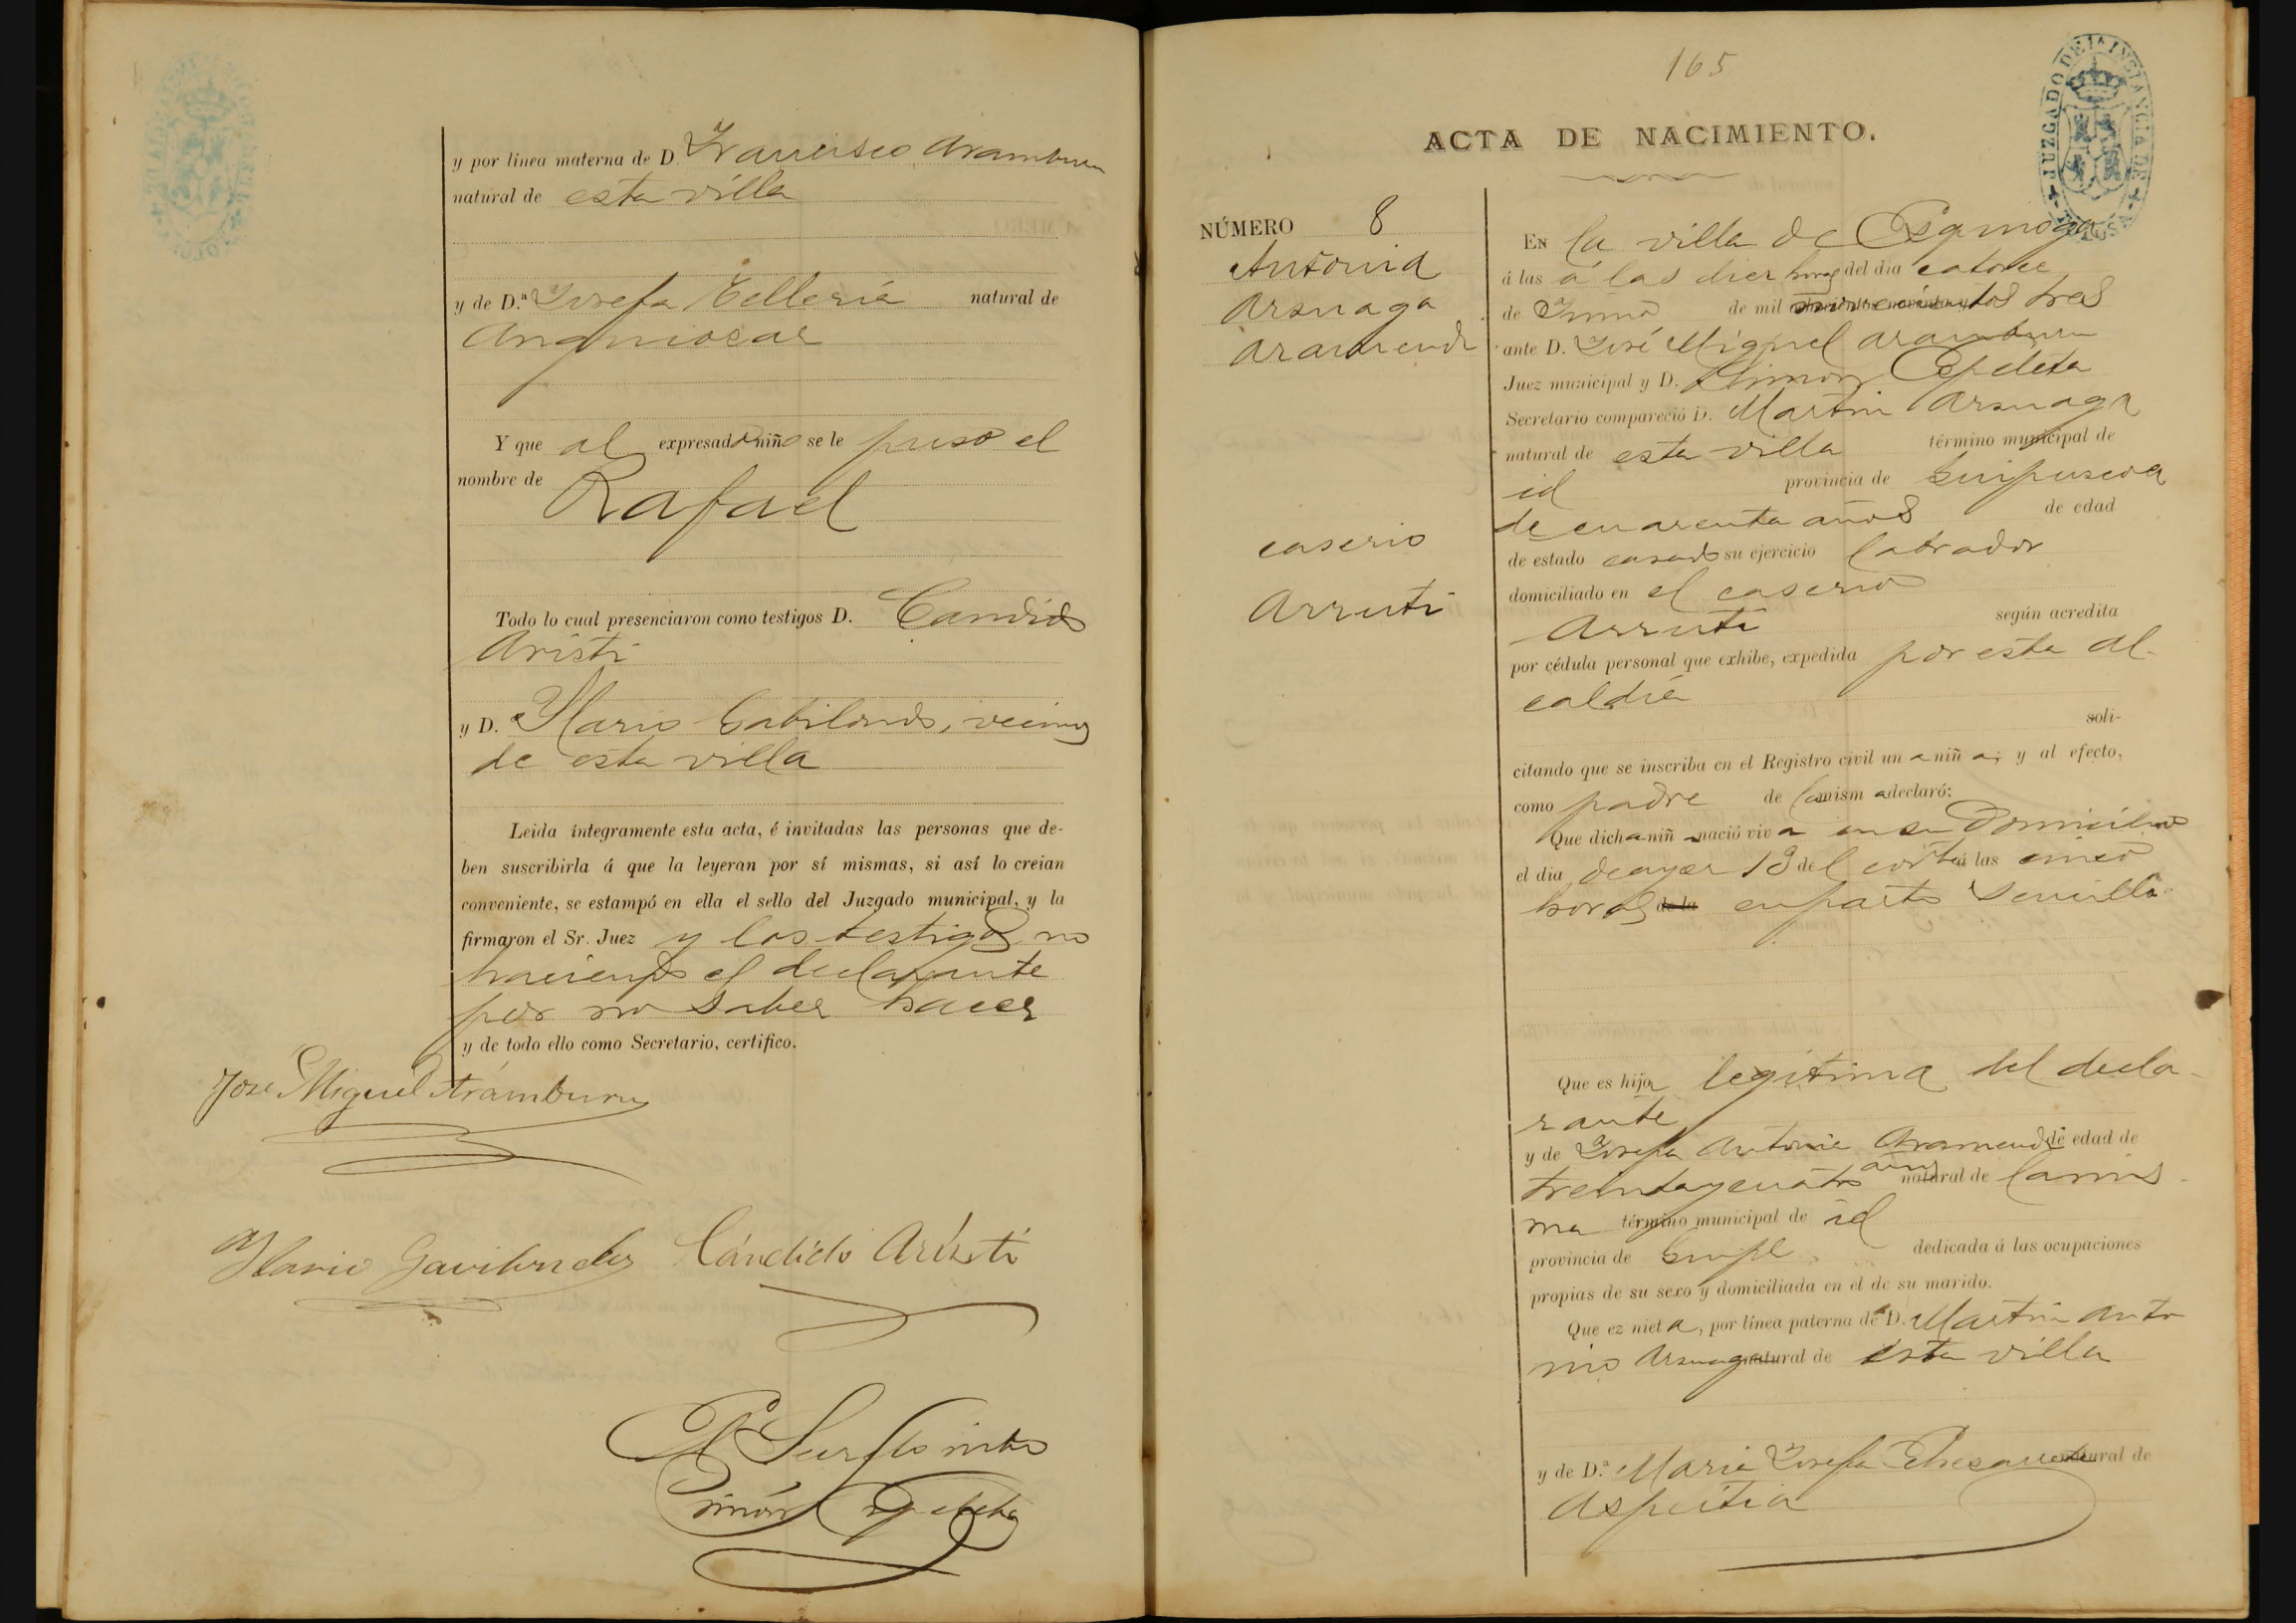 y por línea materna de D. Francisco Aramburu
natural de esta villa
y de D.ª Josefa Telleria natural de
Anguiosar
Y que al expresado niño se le puso el
nombre de
Rafael
Todo lo cual presenciaron como testigos D. Candido
Aristi
y D. Ylario Gabilondo, vecinos
de esta villa
Leida íntegramente esta acta, é invitadas las personas que de-
ben suscribirla á que la leyeran por sí mismas, si así lo creian
conveniente, se estampó en ella el sello del Juzgado municipal, y la
firmaron el Sr. Juez y los testigos no
haciendo el declarante
por no saber hacer
y de todo ello como Secretario, certifico.
José Miguel Aramburu
Ylario Gavilondo Cándido Aristi
Simón Ezpeleta
165
JUZGADO DE 1ª INSTANCIA DE
ACTA DE NACIMIENTO.
NÚMERO 8
Antonia
Arsuaga
Aramendi
caserio
Arruti
En la villa de Ezquioga
á las á las diez horas del dia catorce
de Junio de mil novecientos tres
ante D. José Miguel Aramburu
Juez municipal y D. Simon Ezpeleta
Secretario compareció D. Martin Arsuaga
natural de esta villa término municipal de
id provincia de Guipuscoa
de cuarenta años de edad
de estado casado su ejercicio labrador
domiciliado en el caserio
Arruti según acredita
por cédula personal que exhibe, expedida por esta al-
caldia
soli-
citando que se inscriba en el Registro civil un a niñ a; y al efecto,
como padre de la mism a declaró:
Que dicha niñ a nació viv a en su domicilio
el dia de ayer 13 del corte á las cinco
horas de la en parto sencillo
Que es hija legitima del decla-
rante
y de Josefa Antonia Aramendi de edad de
treinta y cuatro años natural de la mis-
ma término municipal de id
provincia de Guipª dedicada á las ocupaciones
propias de su sexo y domiciliada en el de su marido.
Que ez niet a, por línea paterna de D. Martin Anto
nio Arsuaga natural de esta villa
y de D.ª Maria Josefa natural de
Aspeitia